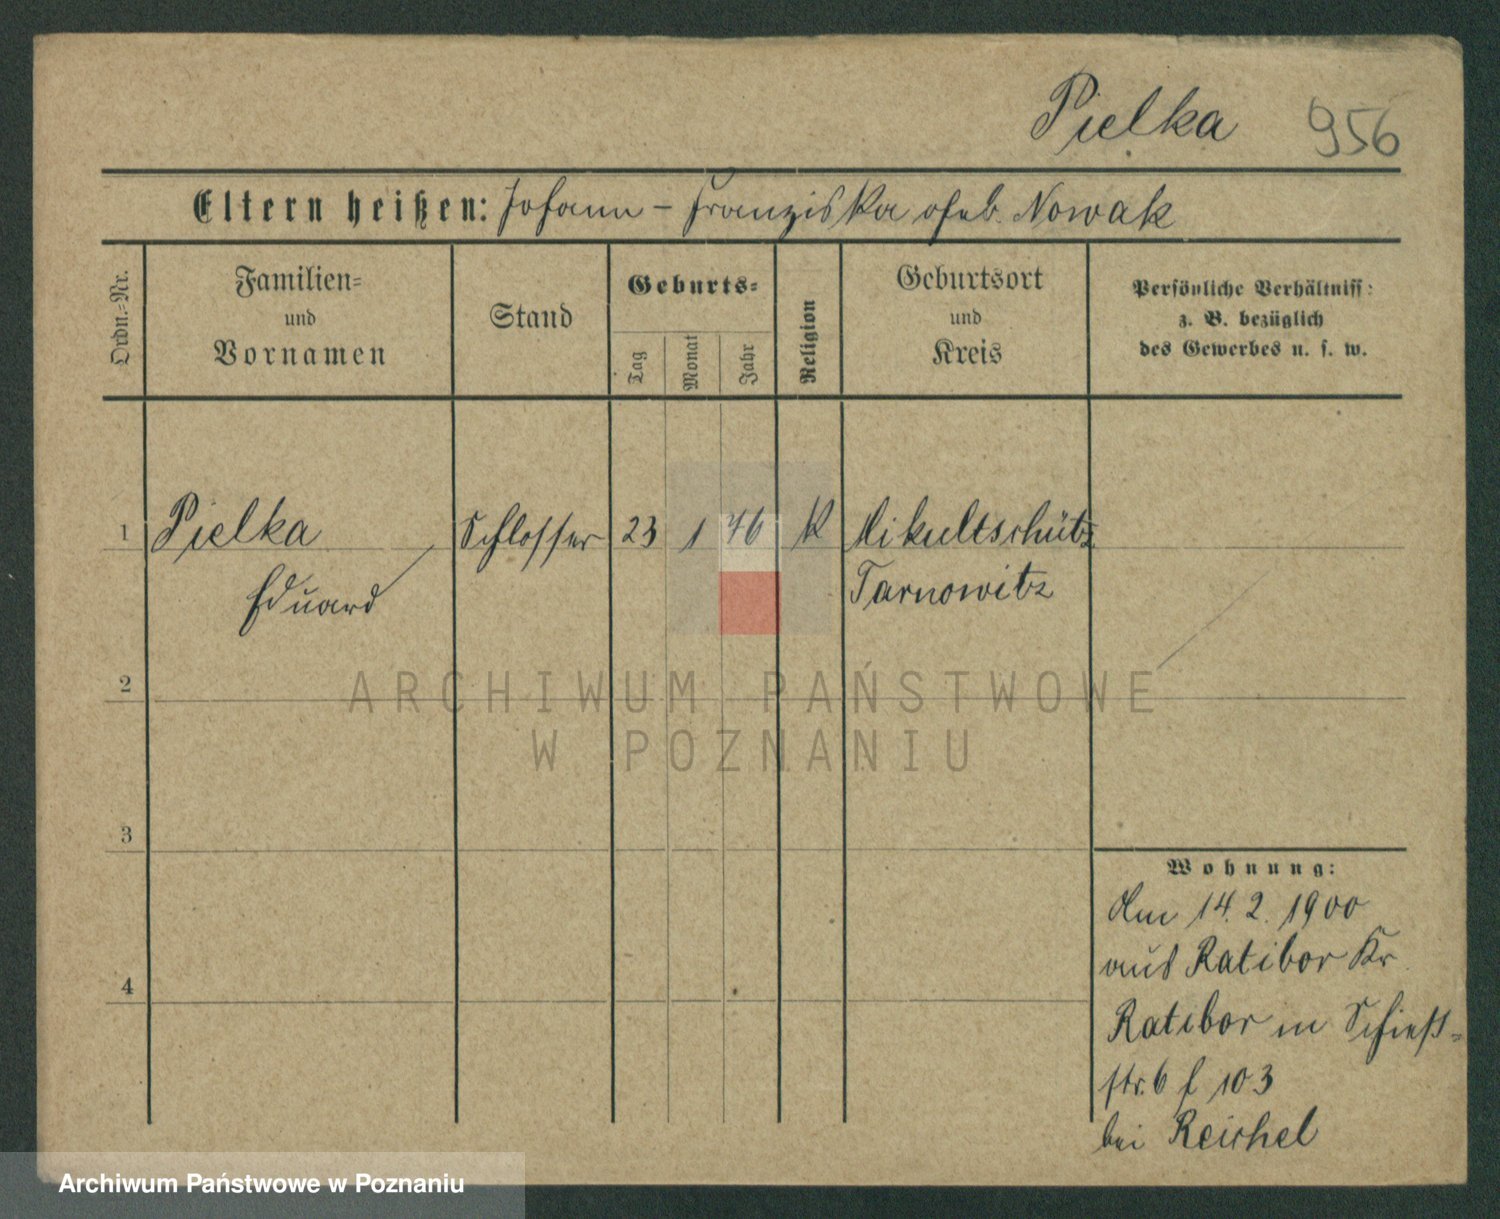 Pielka 956
Eltern heißen: Johann - Franziska geb. Nowak
Ordn.-Nr.
Familien-
und
Vornamen
Stand
Geburts-
Tag
Monat
Jahr
Religion
Geburtsort
und
Kreis
Persönliche Verhältniss:
z. B. bezüglich
des Gewerbes u. s. w.
1 Pielka Schlosser 23 1 76 K Mikultschütz
Eduard Tarnowitz
2
ARCHIWUM PAŃSTWOWE
W POZNANIU
3
Wohnung:
Am 14. 2. 1900
aus Ratibor Kr
4
Ratibor in Schieß-
str. 6 f 103
bei Reichel
Archiwum Państwowe w Poznaniu